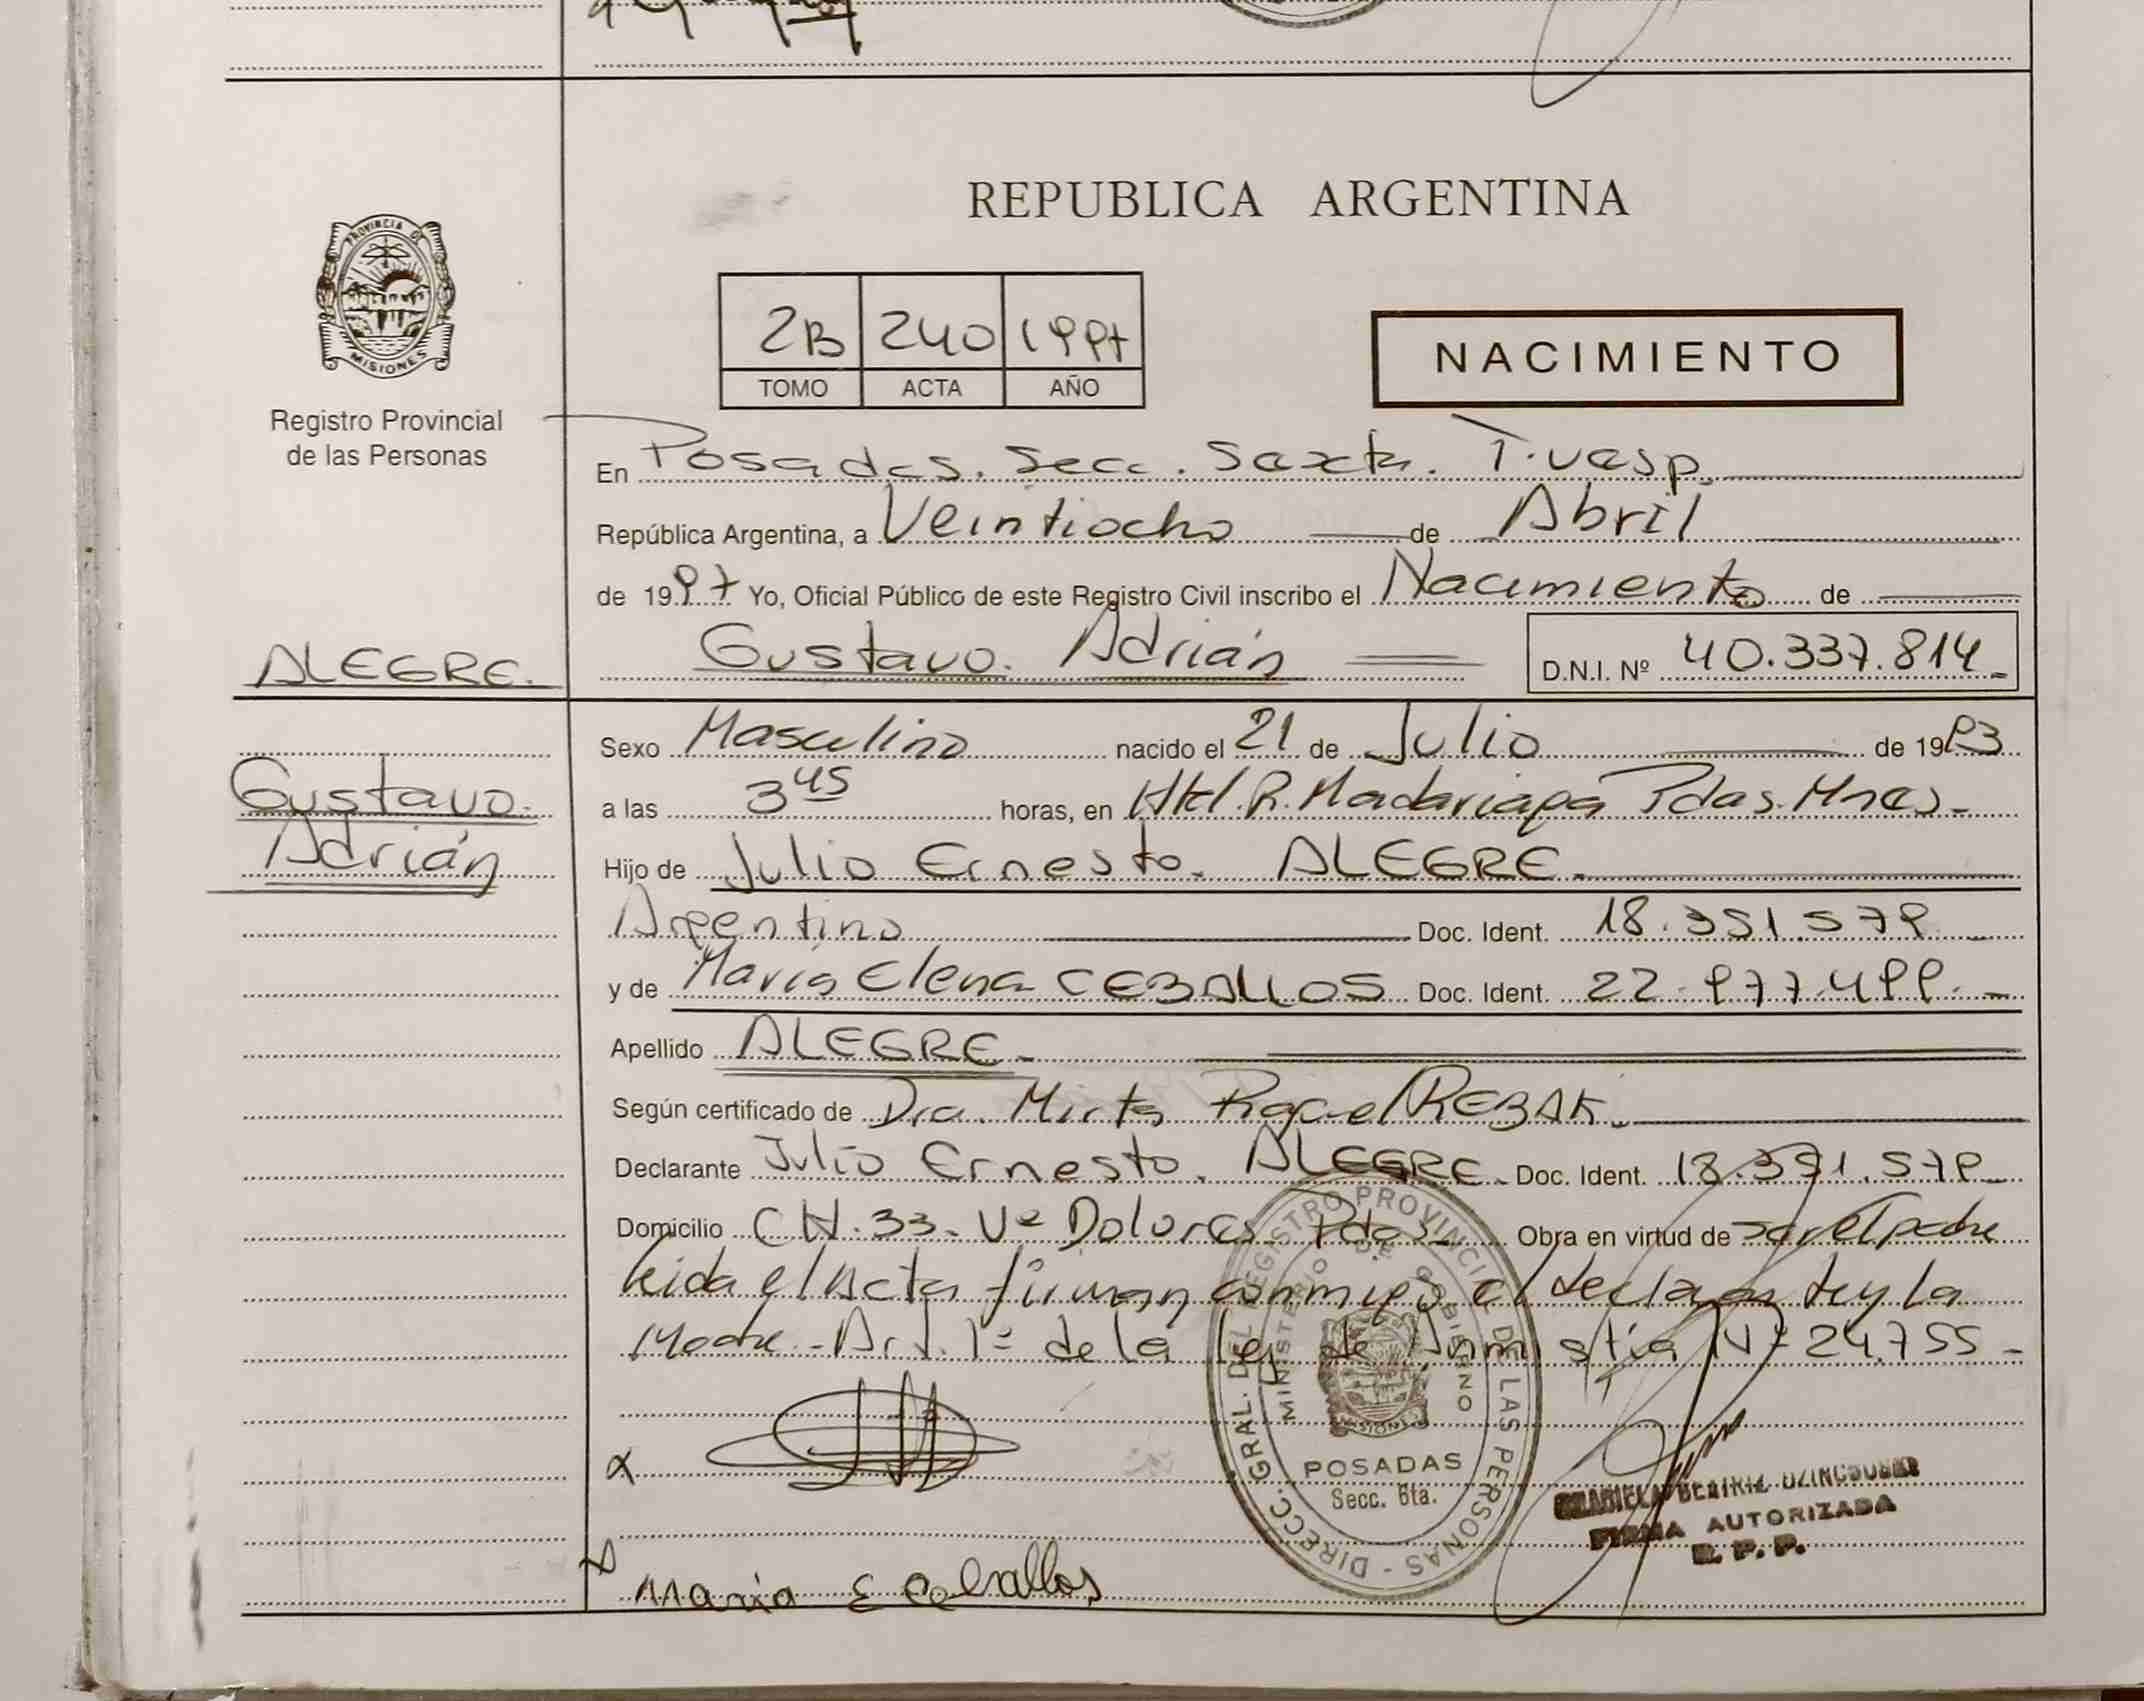 REPUBLICA ARGENTINA
PROVINCIA DE
MISIONES
Registro Provincial
de las Personas
2B 240 1997
TOMO ACTA AÑO
NACIMIENTO
En Posadas. Secc. Sexta. T. vesp.
República Argentina, a Veintiocho de Abril
de 1997 Yo, Oficial Público de este Registro Civil inscribo el Nacimiento de
ALEGRE. Gustavo. Adrián D.N.I. Nº 40.337.814
Sexo Masculino nacido el 21 de Julio de 1993
Gustavo.
Adrián
a las 3 45 horas, en Htal. R. Madariaga Pdas. Mnes.
Hijo de Julio Ernesto. ALEGRE.
Argentino Doc. Ident. 18.391.579
y de María Elena CEBALLOS Doc. Ident. 22.977.499.
Apellido ALEGRE
Según certificado de Dra. Mirta Raquel REBAK.
Declarante Julio Ernesto. ALEGRE. Doc. Ident. 18.391.579
Domicilio CH. 33. Vª Dolores Pdas. Obra en virtud de ser el padre
leida el Acta firman conmigo el declarante y la
Madre.- Art. 1º de la ley de Amnistía Nº 24.755
DIRECC. GRAL. DEL REGISTRO PROVINCIAL DE LAS PERSONAS
MINISTERIO DE GOBIERNO
MISIONES
POSADAS
Secc. 6ta.
FIRMA AUTORIZADA
R. P. P.
Maria E Ceballos